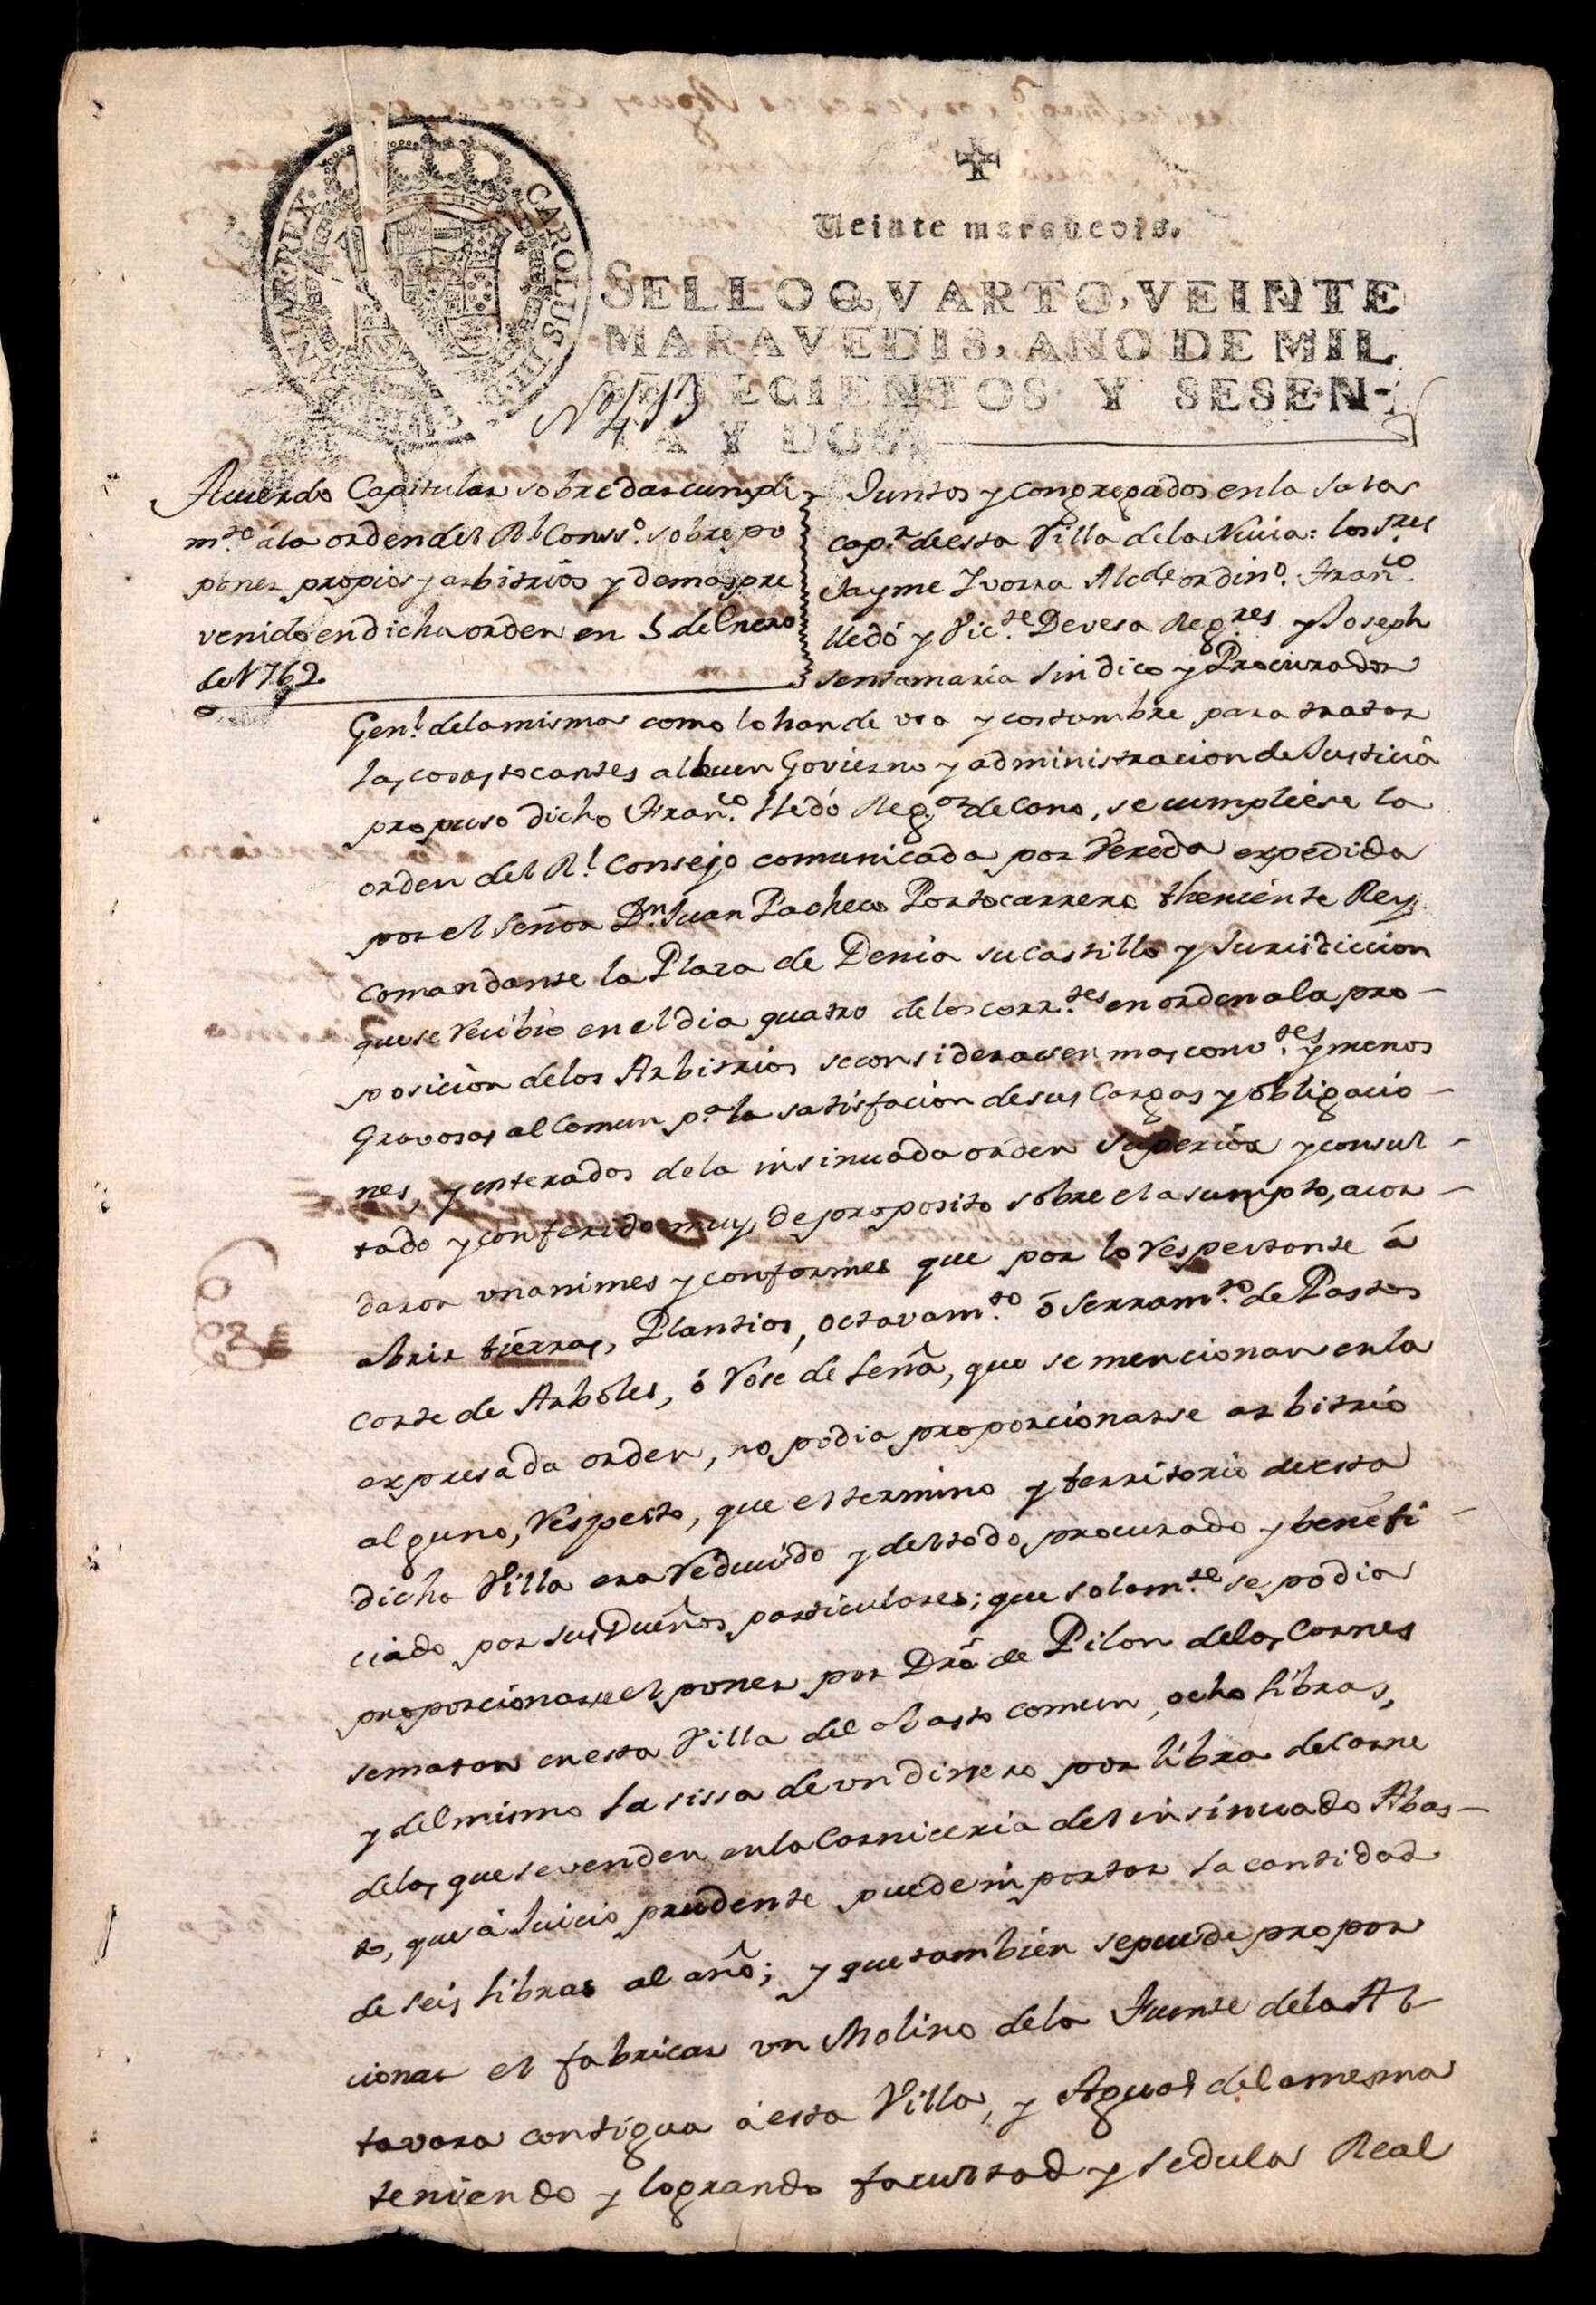 Veinte maravedis.
SELLO QVARTO, VEINTE
MARAVEDIS, AÑO DE MIL
SETECIENTOS Y SESEN-
TA Y DOS.
CAROLUS III D G HISPANIAR REX
Acuerdo Capitular sobre dar cumpli
m.to a la orden del Rl Conss.o sobre po
poner propios y arbitrios y demas pre
venido en dicha orden en 5 de Enero
de 1762
Juntos y congregados en la sala
cap.r de esta Villa de la Nucia: los S.res
Jayme Ivorra Alcde ordin.o Fran.co
lledó y Vic.te Devesa Reg.res y Joseph
sentamaria sindico y Procurador
Gen.l de la misma como lo han de uso y costumbre para tratar
las cosas tocantes al buen Govierno y administracion de Justicia
propuso dicho Fran.co lledó Reg.or decano, se cumpliese la
orden del R.l Consejo comunicada por Vereda expedida
por el Señor Dn. Juan Pacheco Portocarrero theniente Rey
Comandante la Plaza de Denia su Castillo y Jurisdiccion
que se recibio en el dia quatro de los corr.tes en orden a la pro-
posicion de los Arbitrios se considerasen mas conv.tes y menos
Gravosas al Comun p.a la satisfacion de sus Cargas y obligacio-
nes, y enterados de la insinuada orden superior y consul-
tado y conferido muy de proposito sobre el asumpto, acor-
daron unanimes y conformes que por lo respectante á
abrir tierras, Plantios, octavam.to ó serram.to de Pastos
Corte de Arboles, ó Rose de Leña, que se mencionan en la
expresada orden, no podia proporcionarse arbitrio
alguno, Respecto, que el termino y territorio de esta
dicha Villa era Reducido y del todo procurado y benefi-
ciado por sus Dueños particulares; que solam.te se podia
proporcionarse el poner por Dro de Pilon de las Carnes
se matan en esta Villa del abasto comun, ocho libras,
y del mismo la sissa de un dinero por libra de Carne
de las que se venden en la Carniceria del insinuado Abas-
to, que á Juicio prudente puede importar la cantidad
de seis libras al año; y que tambien se puede propor
cionar el fabricar un Molino de la Fuente de la Al-
tavara contigua á esta Villa, y Aguas de la mesma
teniendo y logrando facultad y sedula Real